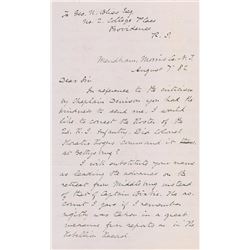 To Geo. N. Bliss Esq
No. 2 College Place
Providence
R. I.
Mendham, Morris Co. N.J.
August 7. 82
Dear Sir
In reference to the
by
Chaplain Denison you had the
kindness to send me, I would
like to correct the Roster of the
2d. R. I. Infantry. Did Colonel
Horatio Rogers command it
at Gettysburg?
I will substitute your name
as leading the advance on the
retreat from Middletown instead
of that of Captain
count I gave if I remember
rightly was taken in a great
measure from reports as in the
Rebellion Record.